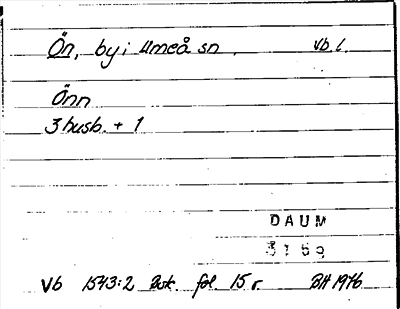 Ön, by i Umeå sn. Vb l.
Önn
3 husb. + 1
DAUM
3159
Vb 1543:2 Bok. fol. 15 r. BH 1976